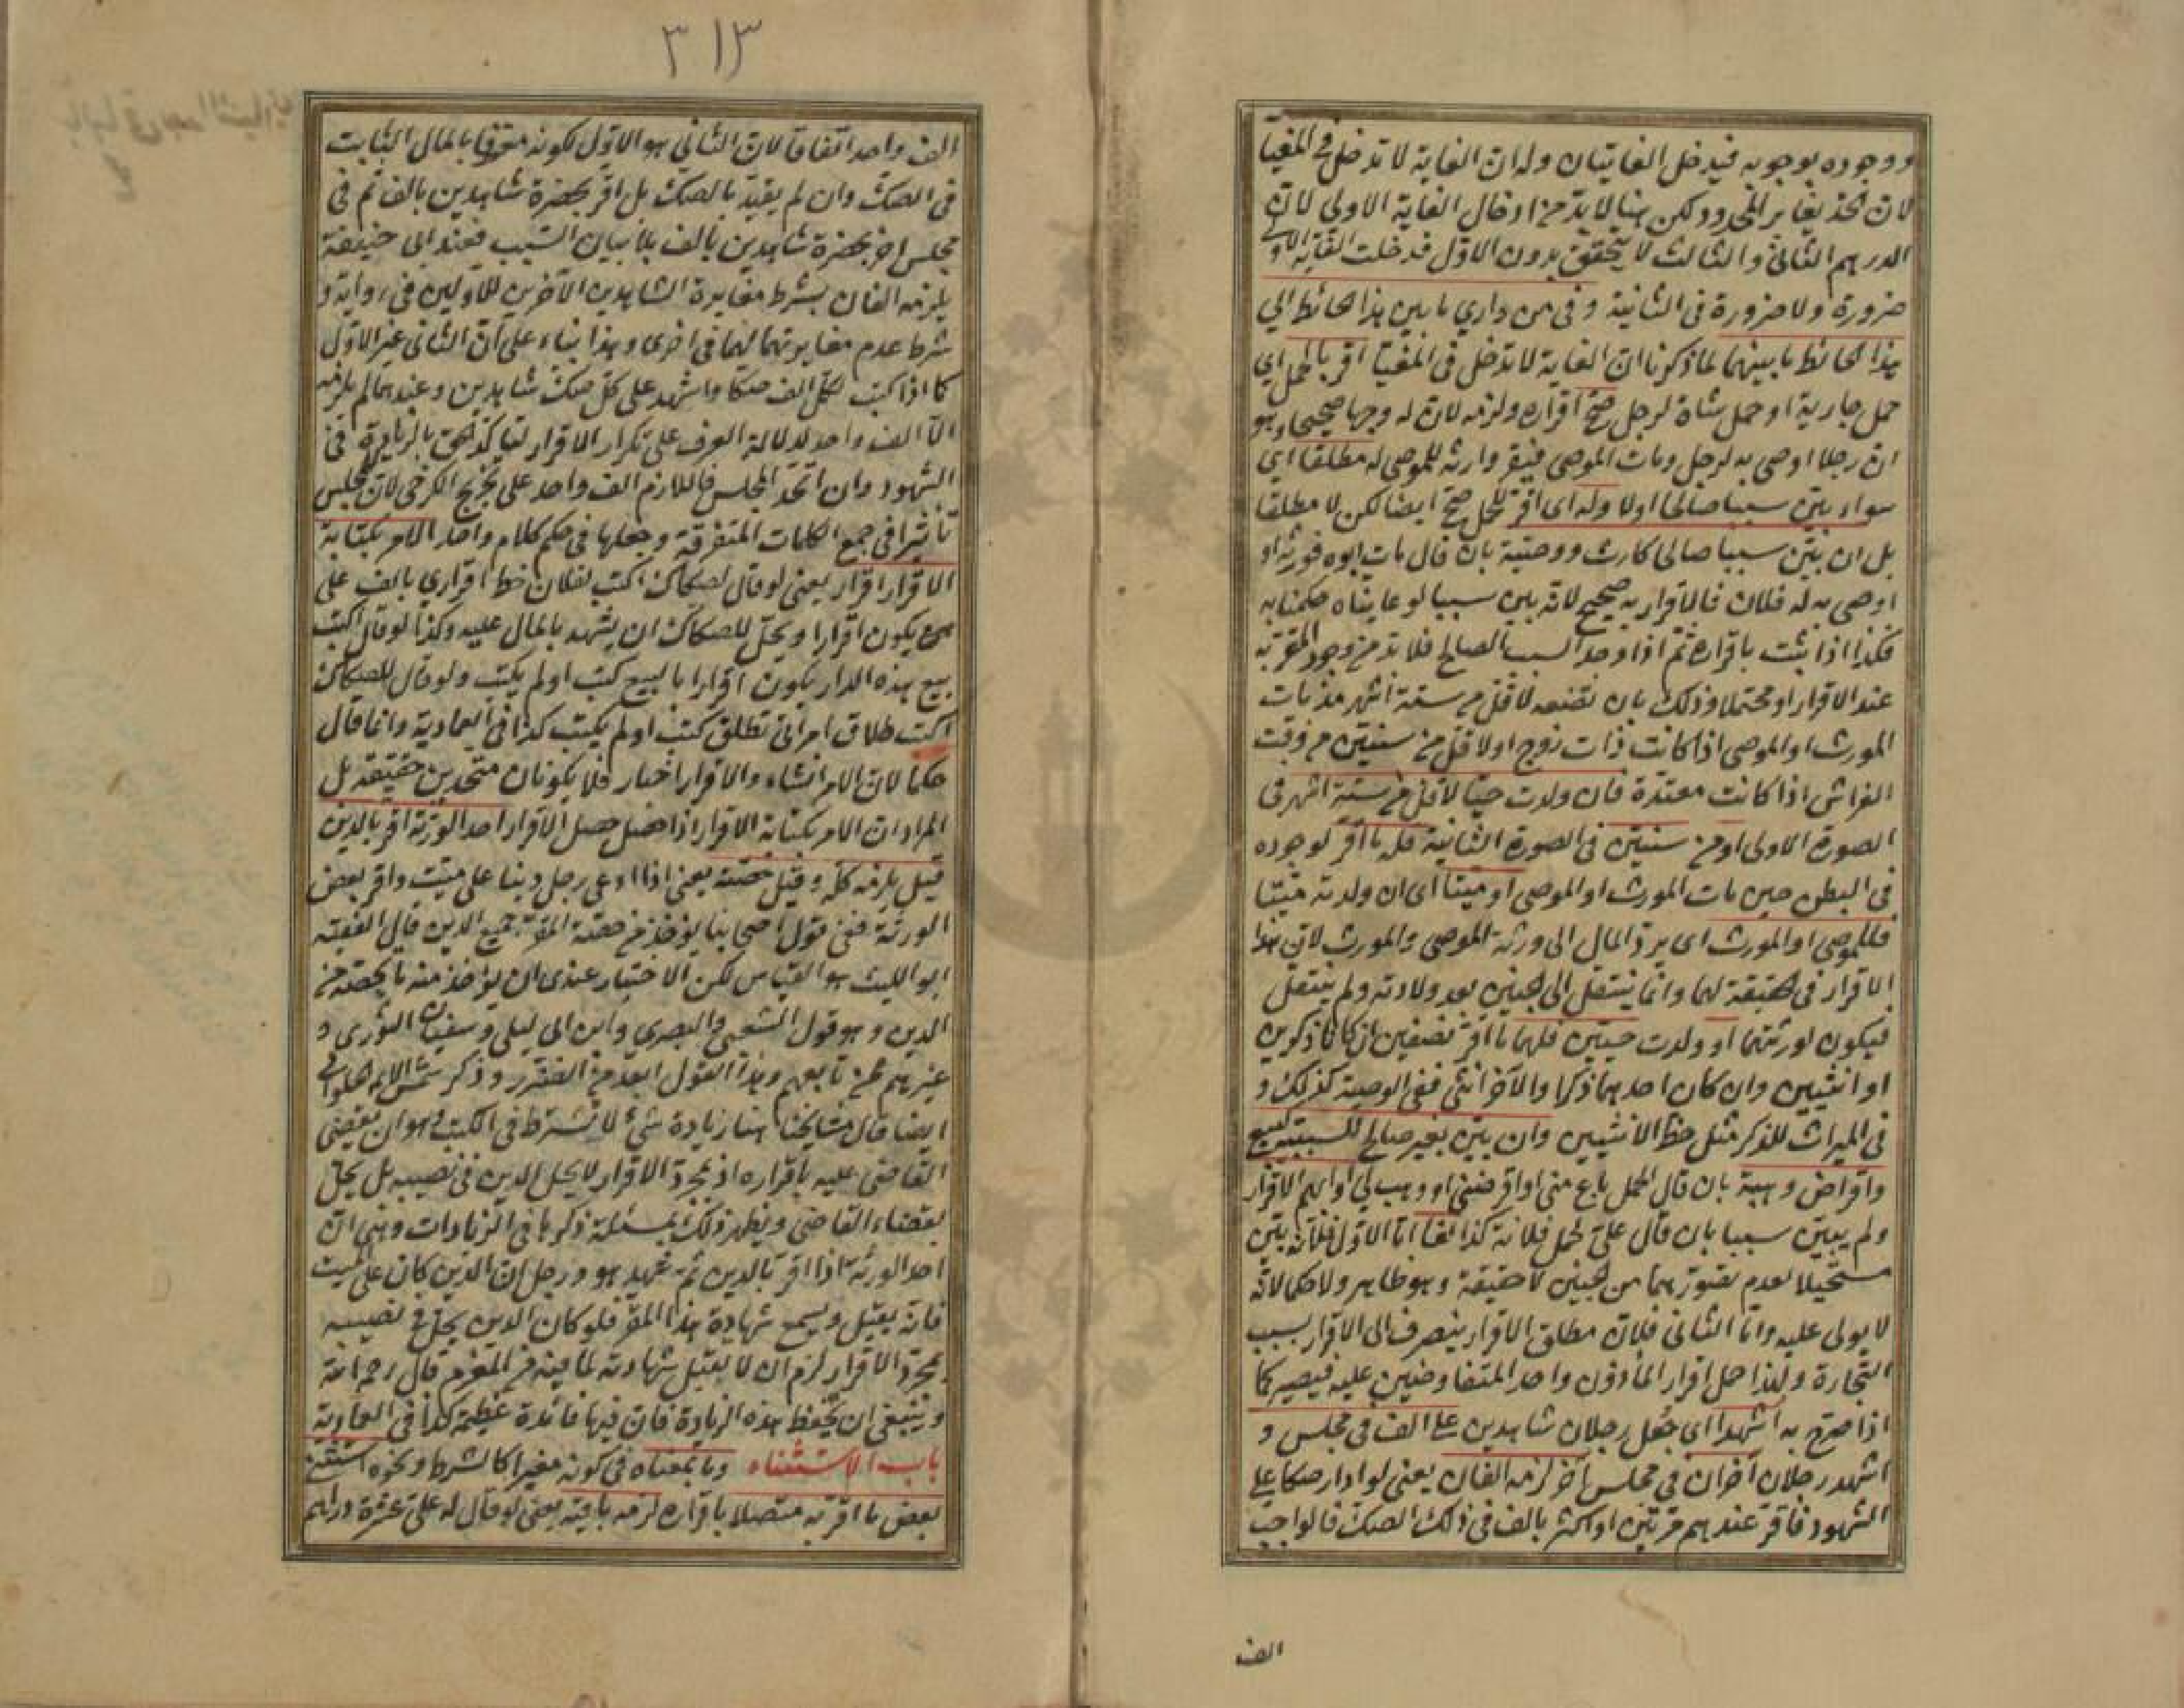 ووجوده بوجوبه فيدخل الغايتان وله ان الغاية لا تدخل في المغيا
لان الحد يغاير المحدود لكن هنا لا بد من ادخال الغاية الاولى لان
الدرهم الثاني والثالث لا يتحقق بدون الاول فدخلت الغاية الاولى
ضرورة ولا ضرورة في الثانية وفي من داري ما بين هذا الحائط الى
هذا الحائط ما بينهما لما ذكرنا ان الغاية لا تدخل في المغيا اقر بالحمل اي
حمل جارية او حمل شاة لرجل صح اقراره ولزمه لان له وجها صحيحا وهو
ان رجلا اوصى به لرجل ومات الموصي فيقر وارثه للموصى له مطلقا اي
سواء بين سببا صالحا اولا وله اي اقر للحمل صح ايضا لكن لا مطلقا
بل ان بين سببا صالحا كارث ووصية بان قال مات ابوه فورثه او
اوصى به له فلان فالاقرار به صحيح لانه بين سببا لو عايناه حكمنا به
فكذا اذا ثبت باقراره ثم اذا وجد السبب الصالح فلا بد من وجود المقر به
عند الاقرار او محتملا وذلك بان تضعه لاقل من ستة اشهر مذ مات
المورث او الموصي اذا كانت ذات زوج او لاقل من سنتين من وقت
الفراش اذا كانت معتدة فان ولدت حيا لاقل من ستة اشهر في
الصورة الاولى او من سنتين في الصورة الثانية فله ما اقر لوجوده
في البطن حين مات المورث او الموصي او ميتا اي ان ولدته ميتا
فللموصي او المورث اي يرد المال الى ورثة الموصي والمورث لان هذا
الاقرار في الحقيقة لهما وانما ينتقل الى الجنين بعد ولادته ولم ينتقل
فيكون لورثتهما او ولدت حيين فلهما ما اقر نصفين ان كانا ذكرين
او انثيين وان كان احدهما ذكرا والآخر انثى ففي الوصية كذلك و
في الميراث للذكر مثل حظ الانثيين وان بين بغير صالح للسببية كبيع
واقراض وهبة بان قال الحمل باع مني او اقرضني او وهب لي او ابهم الاقرار
ولم يبين سببا بان قال علي لحمل فلانة كذا لغا اما الاول فلانه بين
مستحيلا لعدم تصورهما من الجنين لا حقيقة وهو ظاهر ولا حكما لانه
لا يولى عليه واما الثاني فلان مطلق الاقرار ينصرف الى الاقرار بسبب
التجارة ولهذا حمل اقرار المأذون واحد المتفاوضين عليه فيصير كما
اذا صرح به اشهد اي جعل رجلان شاهدين على الف في مجلس و
اشهد رجلان آخران في مجلس آخر لزمه الفان يعني لو ادار صكا على
الشهود فاقر عندهم مرتين او اكثر بالف في ذلك الصك فالواجب
الف
٣١٣
الف واحد اتفاقا لان الثاني هو الاول لكونه معرفا بالمال الثابت
في الصك وان لم يقيد بالصك بل اقر بحضرة شاهدين بالف ثم في
مجلس اخر بحضرة شاهدين بالف بلا بيان السبب فعند ابي حنيفة
يلزمه الفان بشرط مغايرة الشاهدين الآخرين للاولين في رواية و
شرط عدم مغايرتهما لهما في اخرى وهذا بناء على ان الثاني غير الاول
كما اذا كتب لكل الف صكا واشهد على كل صك شاهدين وعندهما لم يلزمه
الا الف واحد لدلالة العرف على تكرار الاقرار لتاكد الحق بالزيادة في
الشهود وان اتحد المجلس فاللازم الف واحد على تخريج الكرخي لان للمجلس
تأثيرا في جمع الكلمات المتفرقة وجعلها في حكم كلام واحد الامر بكتابة
الاقرار اقرار يعني لو قال لصكاك اكتب لفلان خط اقراري بالف علي
يكون اقرارا ويحل للصكاك ان يشهد بالمال عليه وكذا لو قال اكتب
بيع هذه الدار يكون اقرارا بالبيع كتب او لم يكتب ولو قال للصكاك
اكتب طلاق امرأتي تطلق كتب او لم يكتب كذا في العمادية وانما قال
حكما لان الامر انشاء والاقرار اخبار فلا يكونان متحدين حقيقة بل
المراد ان الامر بكتابة الاقرار اذا حصل حصل الاقرار احد الورثة اقر بالدين
قيل يلزمه كله وقيل حصته يعني اذا ادعى رجل دينا على ميت واقر بعض
الورثة ففي قول اصحابنا يؤخذ من حصة المقر جميع الدين قال الفقيه
ابو الليث هو القياس لكن الاختيار عندي ان يؤاخذ منه ما يخصه من
الدين وهو قول الشعبي والبصري وابن ابي ليلى وسفيان الثوري و
غيرهم ممن تابعهم وهذا القول ابعد من الضرر وذكر شمس الائمة الحلواني
ايضا قال مشايخنا هنا زيادة شئ لا تشترط في الكتب وهو ان يقضي
القاضي عليه باقراره اذ بمجرد الاقرار لا يحل الدين في نصيبه بل يحل
بقضاء القاضي ويظهر ذلك بمسئلة ذكرها في الزيادات وهي ان
احد الورثة اذا اقر بالدين ثم شهد هو ورجل ان الدين كان على الميت
فانه يقبل ويسمع شهادة هذا المقر فلو كان الدين يحل في نصيبه
بمجرد الاقرار لزم ان لا يقبل شهادته لما فيه من المغرم قال رحمه الله
وينبغي ان يحفظ هذه الزيادة فان فيها فائدة عظيمة كذا في العمادية
باب الاستثناء وما بمعناه في كونه مغيرا كالشرط ونحوه استثنى
بعض ما اقر به متصلا باقراره لزمه باقيه يعني لو قال له علي عشرة دراهم